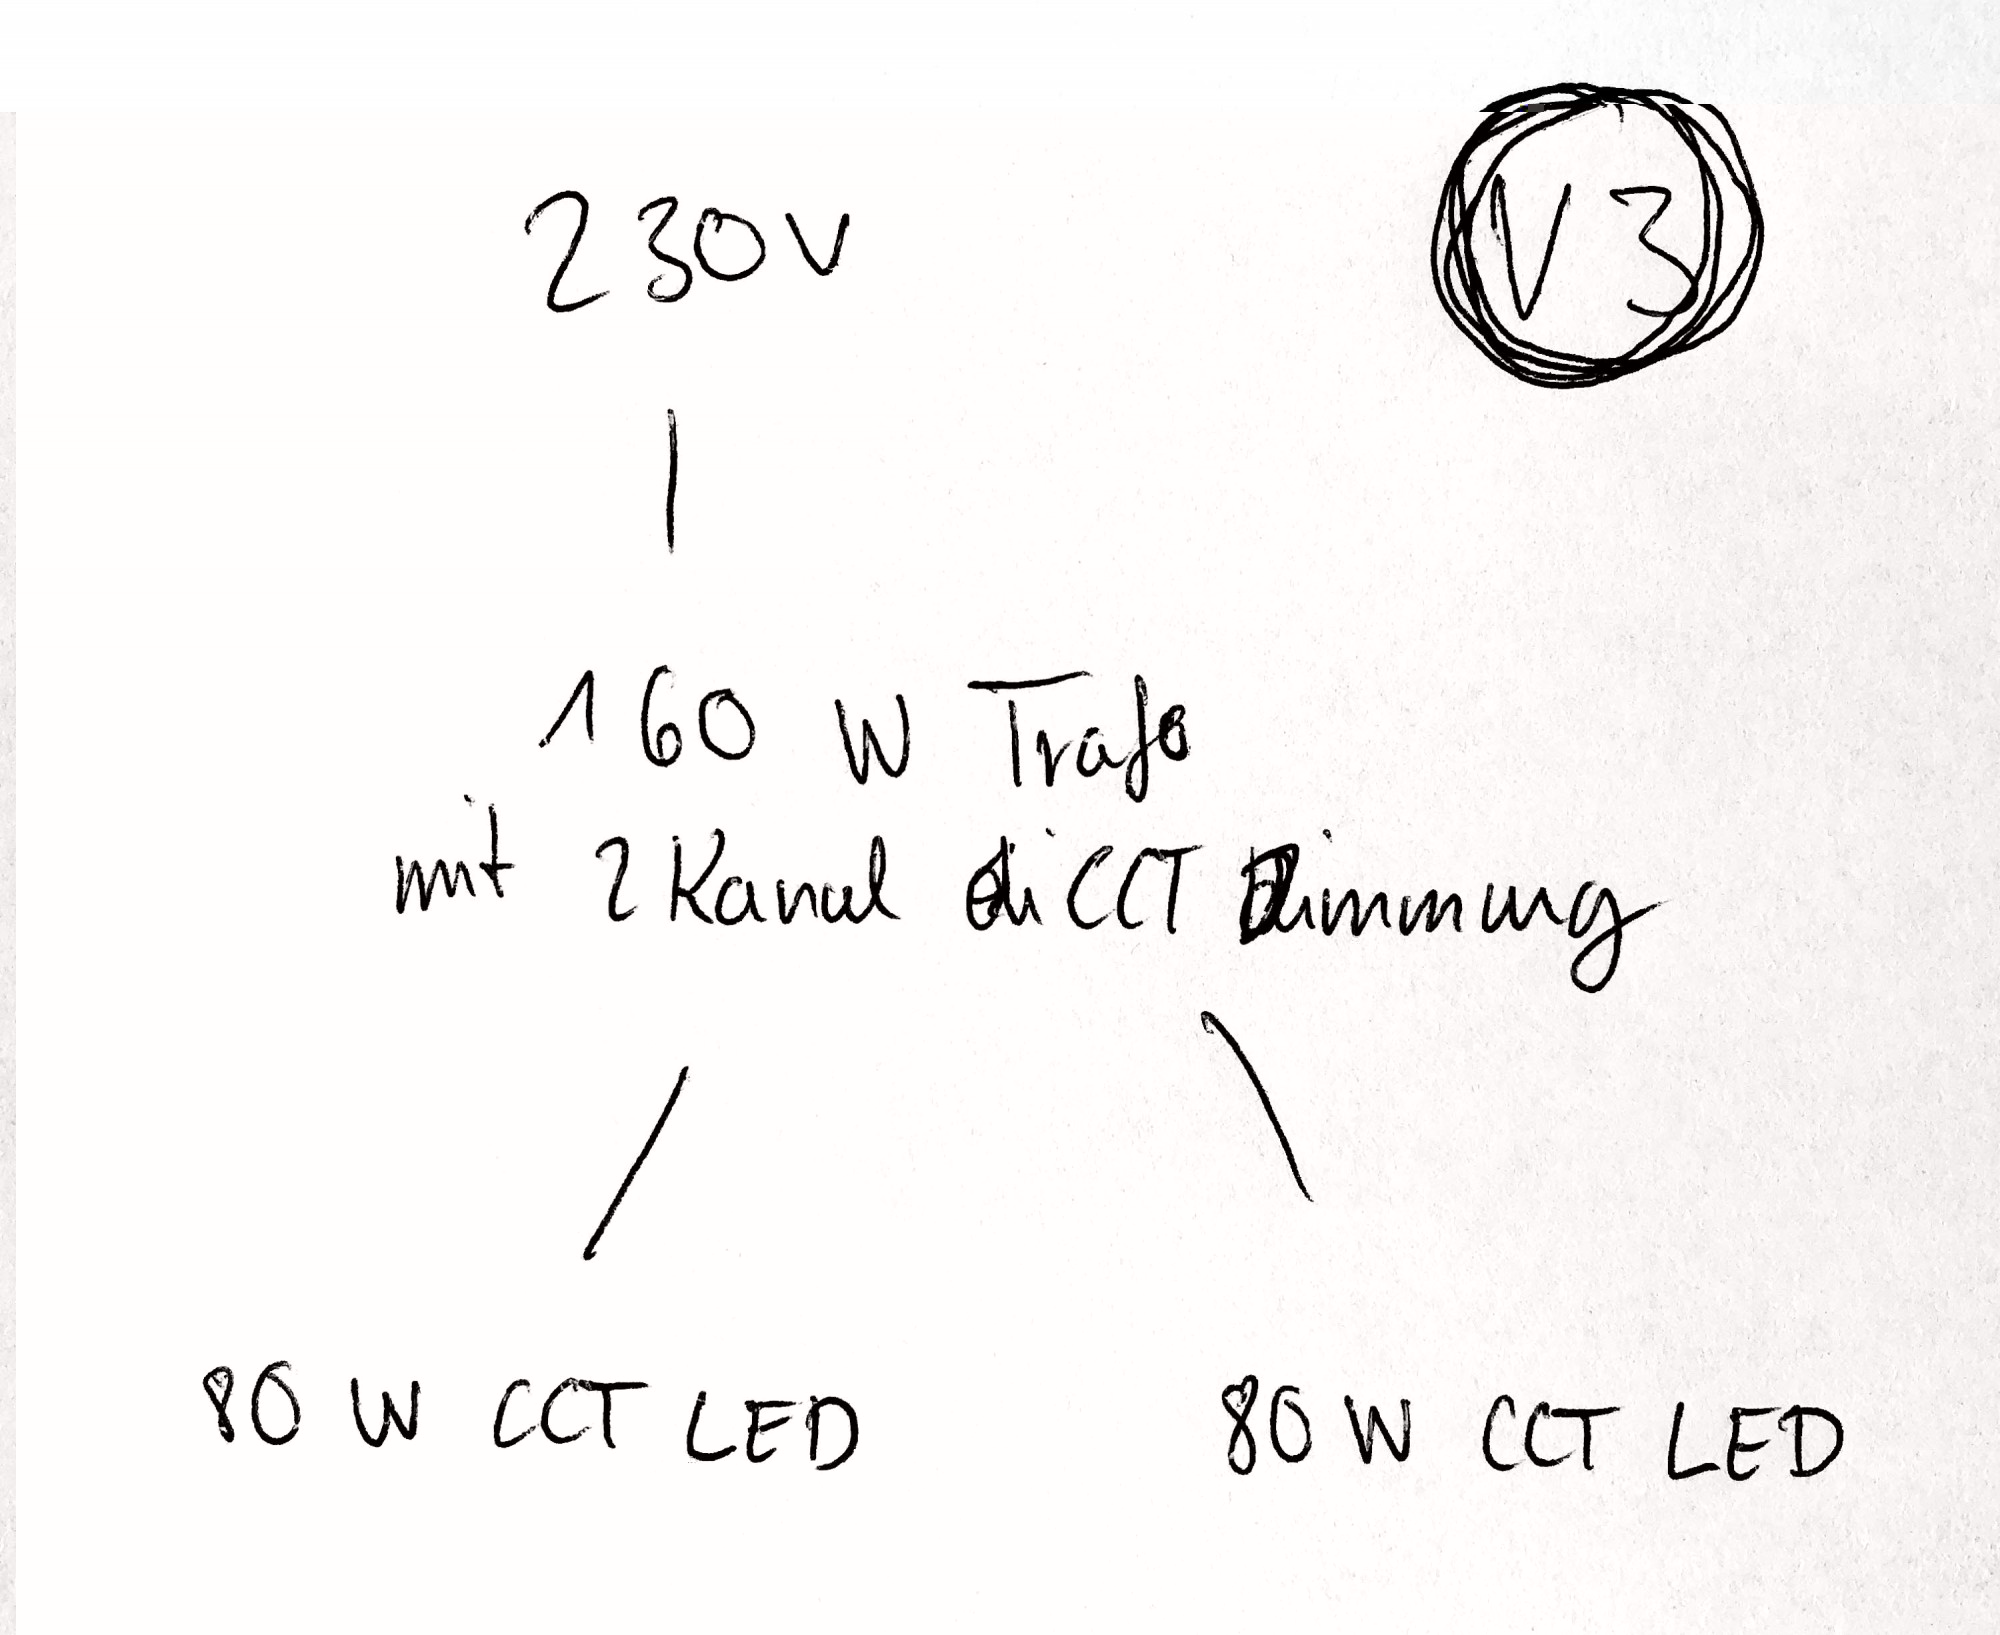 230V
V3
160 W Trafo
mit 2 Kanal CCT Dimmung
80 W CCT LED
80 W CCT LED